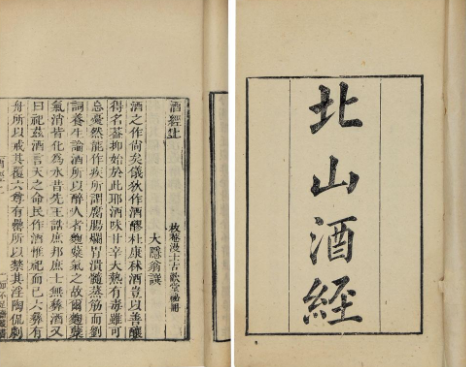 北山酒経
酒經上
枚菴漫士古歡堂秘冊
大隱翁譔
酒之作尚矣儀狄作酒醪杜康秫酒豈以善釀
得名蓋抑始於此耶酒味甘辛大熱有毒雖可
忘憂然能作疾所謂腐腸爛胃潰髓蒸筋而劉
詞養生論酒所以醉人者麴糵氣之故爾麴糵
氣消皆化為水昔先王誥庶邦庶士無彝酒又
曰祀茲酒言天之命民作酒惟祀而已六彝有
舟所以戒其覆六尊有罍所以禁其淫陶侃劇